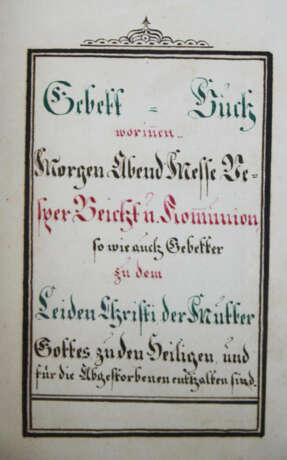 Gebett = Buch
worinen
Morgen Abend Messe Ve-
sper Beicht u. Kommunion
so wie auch Gebetter
zu dem
Leiden Christi der Mutter
Gottes zu den Heiligen und
für die Abgestorbenen enthalten sind.